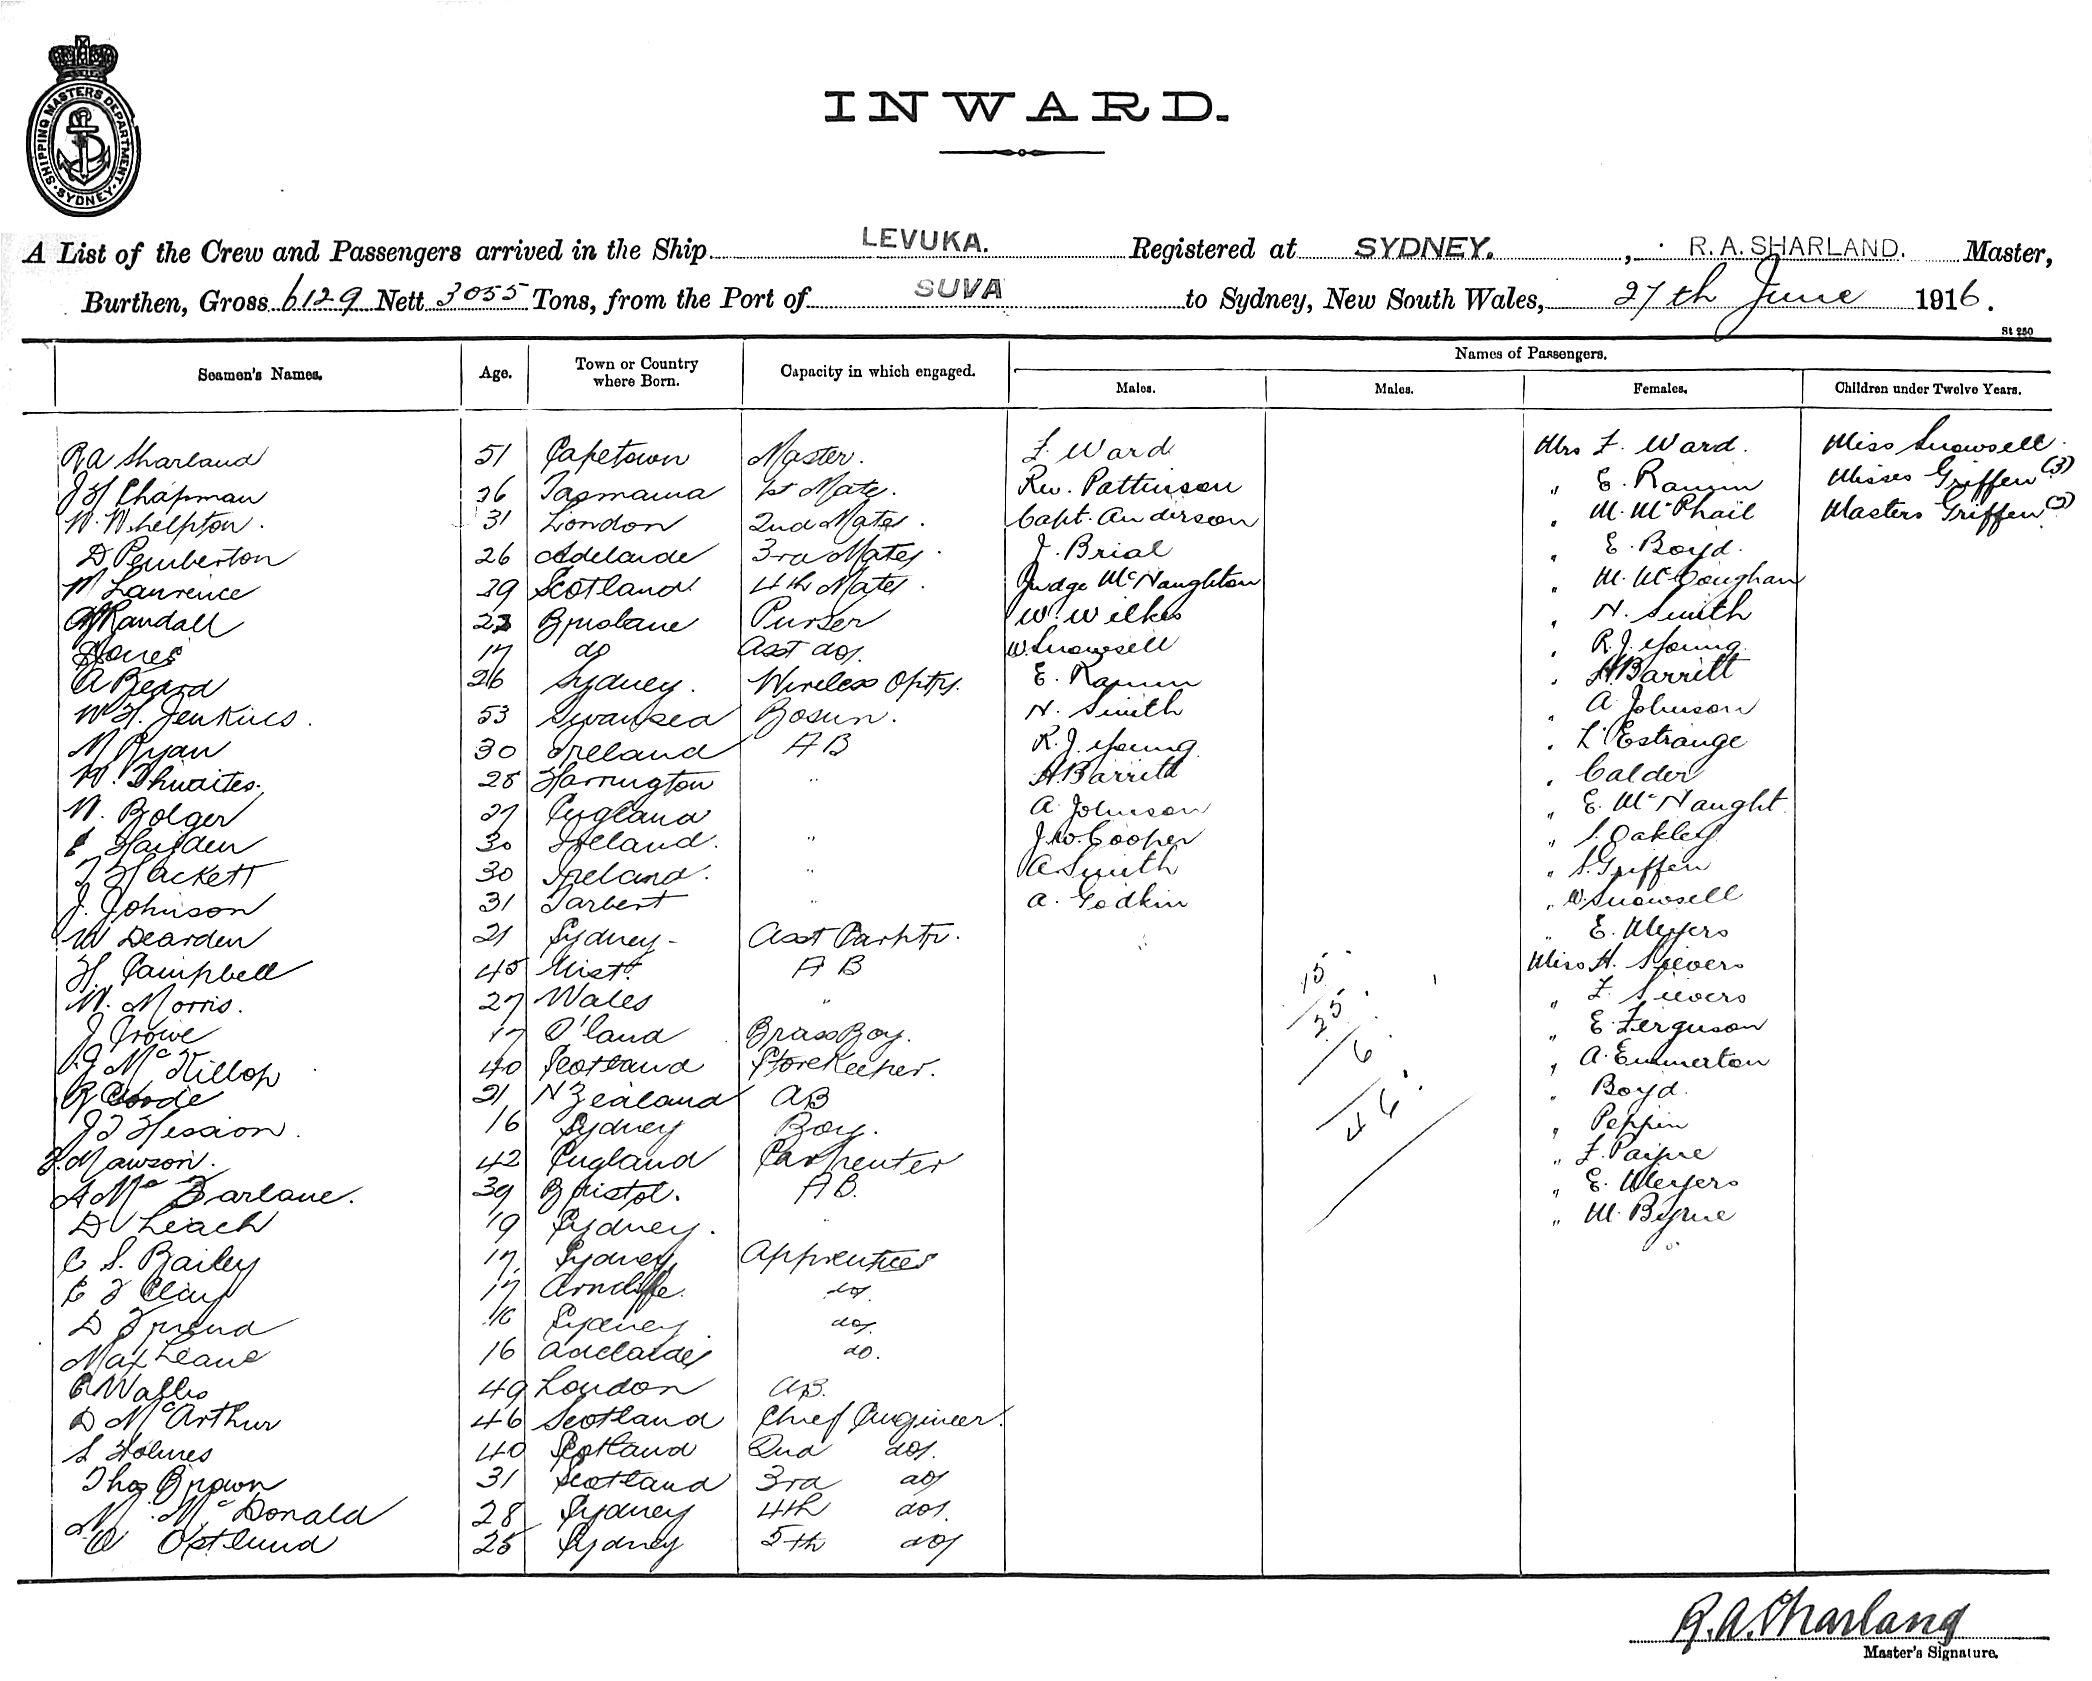 SHIPPING MASTERS DEPARTMENT · SYDNEY ·
INWARD.
A List of the Crew and Passengers arrived in the Ship LEVUKA. Registered at SYDNEY. , R.A. SHARLAND. Master,
Burthen, Gross 6129 Nett 3055 Tons, from the Port of SUVA to Sydney, New South Wales, 27th June 1916.
St 250
Names of Passengers.
Seamen's Names. Age. Town or Country where Born. Capacity in which engaged. Males. Males. Females. Children under Twelve Years.
RA Sharland 51 Capetown Master. F. Ward Mrs F. Ward. Miss Snowsell
J H Chapman 36 Tasmania 1st Mate. Rev. Pattinson " E. Ramm Misses Griffen (3)
W. Whelpton. 31 London 2nd Mate. Capt. Anderson " M. McPhail Masters Griffen
D Pemberton 26 Adelaide 3rd Mate J. Brial " E. Boyd.
M Laurence 39 Scotland 4th Mate. Judge McNaughton " M.
Randall 23 Brisbane Purser W. Wilkes " N. Smith
Jones 17 do Asst do. W. Snowsell " R. J. Young
A Beard 26 Sydney. Wireless Optr. E. Ramm " H. Barritt
W H. Jenkins. 53 Swansea Bosun. N. Smith " A Johnson
M Ryan 30 Ireland A B R. J. Young " L'Estrange
W. Thwaites. 28 Harrington " H. Barritt " Calder
W. Bolger 27 England A. Johnson " E. McNaught
Hayden 30 Ireland. " J. W. Cooper " S. Oakley
T Hackett 30 Ireland. " A Smith " S. Griffen
J. Johnson 31 Tarbert " A. Godkin " W. Snowsell
W Dearden 21 Sydney - Asst Carptr. " E. Meyers
H. Campbell 45 A B Miss H. Sievers
W. Morris. 27 Wales " " F. Sievers
J Crowe 17 Q'land Brass Boy. " E. Ferguson
J McKillop 40 Scotland Storekeeper. " A. Emmerton
R 21 N Zealand AB " Boyd.
J T Hession. 16 Sydney Boy. " Peppin
F. Mawson. 42 England Carpenter " F. Payne
A McFarlane. 39 Bristol. A B. " E. Meyers
D Leach 19 Sydney. " " M. Byrne
15
25
6
46
C S. Bailey 17 Sydney Apprentice
E F Clay 17 Arncliffe. do.
D Friend 16 Sydney do.
Max Leane 16 Adelaide do.
Wallis 49 London AB.
D McArthur 46 Scotland Chief Engineer.
S Holmes 40 Scotland 2nd do.
Thos Brown 31 Scotland 3rd do
N. McDonald 28 Sydney 4th do.
O Ostlund 25 Sydney 5th do
R.A. Sharland
Master's Signature.